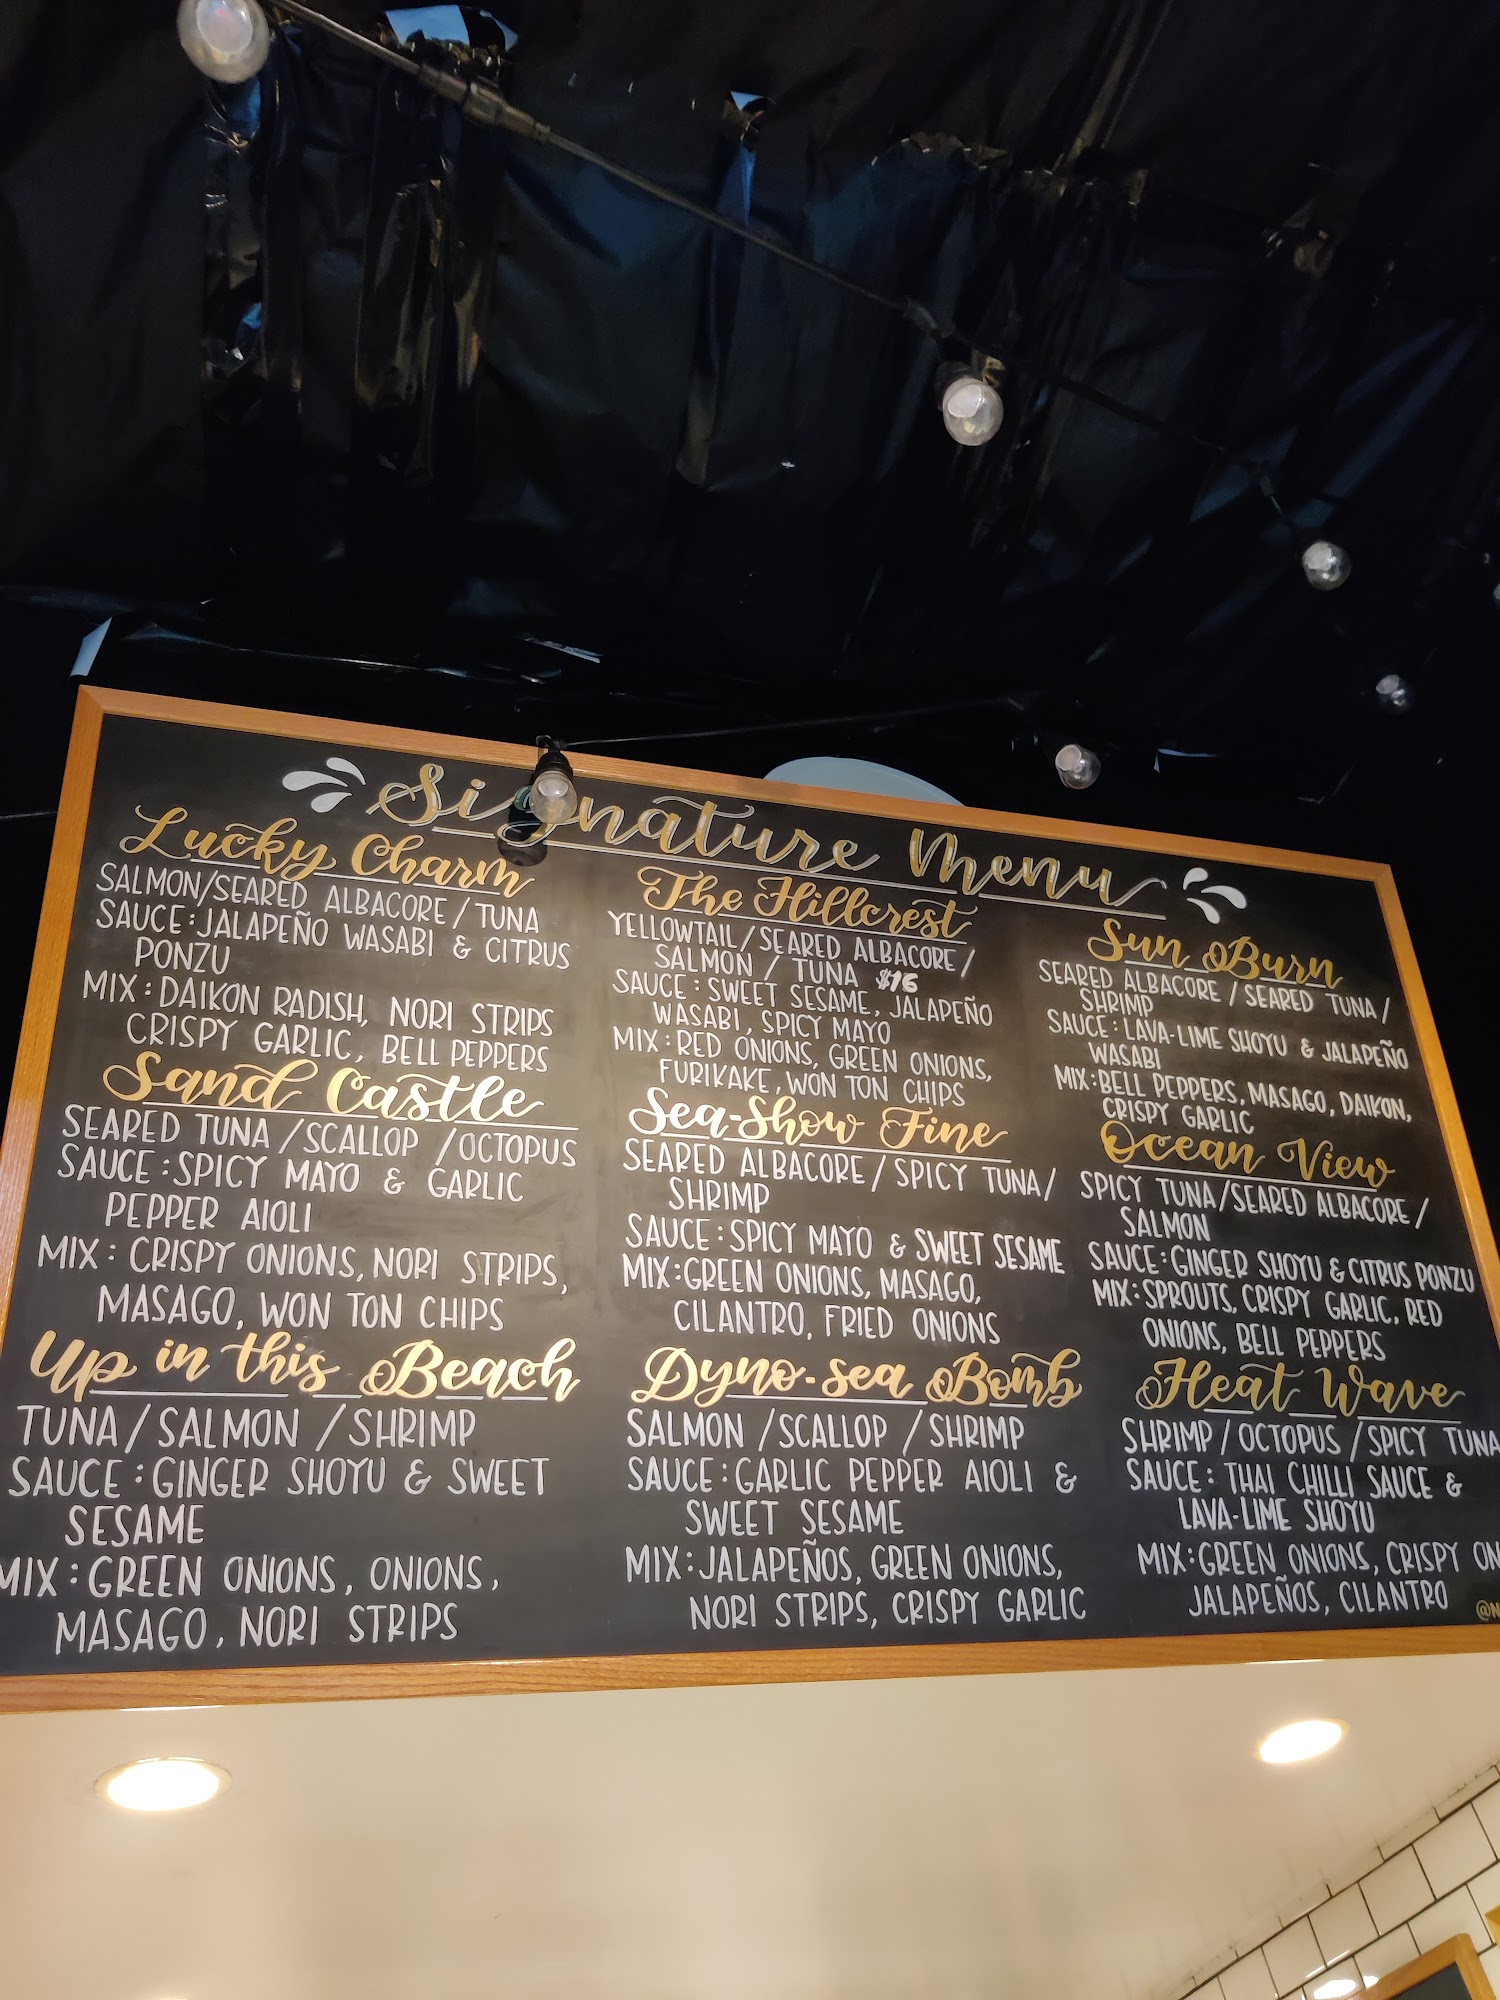 Signature Menu
Lucky Charm
SALMON/SEARED ALBACORE/TUNA
SAUCE: JALAPEÑO WASABI & CITRUS
PONZU
MIX: DAIKON RADISH, NORI STRIPS
CRISPY GARLIC, BELL PEPPERS
Sand Castle
SEARED TUNA/SCALLOP/OCTOPUS
SAUCE: SPICY MAYO & GARLIC
PEPPER AIOLI
MIX: CRISPY ONIONS, NORI STRIPS,
MASAGO, WON TON CHIPS
Up in this Beach
TUNA/SALMON/SHRIMP
SAUCE: GINGER SHOYU & SWEET
SESAME
MIX: GREEN ONIONS, ONIONS,
MASAGO, NORI STRIPS
The Hillcrest
YELLOWTAIL/SEARED ALBACORE/
SALMON/TUNA $16
SAUCE: SWEET SESAME, JALAPEÑO
WASABI, SPICY MAYO
MIX: RED ONIONS, GREEN ONIONS,
FURIKAKE, WON TON CHIPS
Sea-Show Fine
SEARED ALBACORE/SPICY TUNA/
SHRIMP
SAUCE: SPICY MAYO & SWEET SESAME
MIX: GREEN ONIONS, MASAGO,
CILANTRO, FRIED ONIONS
Dyno-sea Bomb
SALMON/SCALLOP/SHRIMP
SAUCE: GARLIC PEPPER AIOLI &
SWEET SESAME
MIX: JALAPEÑOS, GREEN ONIONS,
NORI STRIPS, CRISPY GARLIC
Sun Burn
SEARED ALBACORE/SEARED TUNA/
SHRIMP
SAUCE: LAVA-LIME SHOYU & JALAPEÑO
WASABI
MIX: BELL PEPPERS, MASAGO, DAIKON,
CRISPY GARLIC
Ocean View
SPICY TUNA/SEARED ALBACORE/
SALMON
SAUCE: GINGER SHOYU & CITRUS PONZU
MIX: SPROUTS, CRISPY GARLIC, RED
ONIONS, BELL PEPPERS
Heat Wave
SHRIMP/OCTOPUS/SPICY TUNA
SAUCE: THAI CHILLI SAUCE &
LAVA-LIME SHOYU
MIX: GREEN ONIONS, CRISPY
JALAPEÑOS, CILANTRO